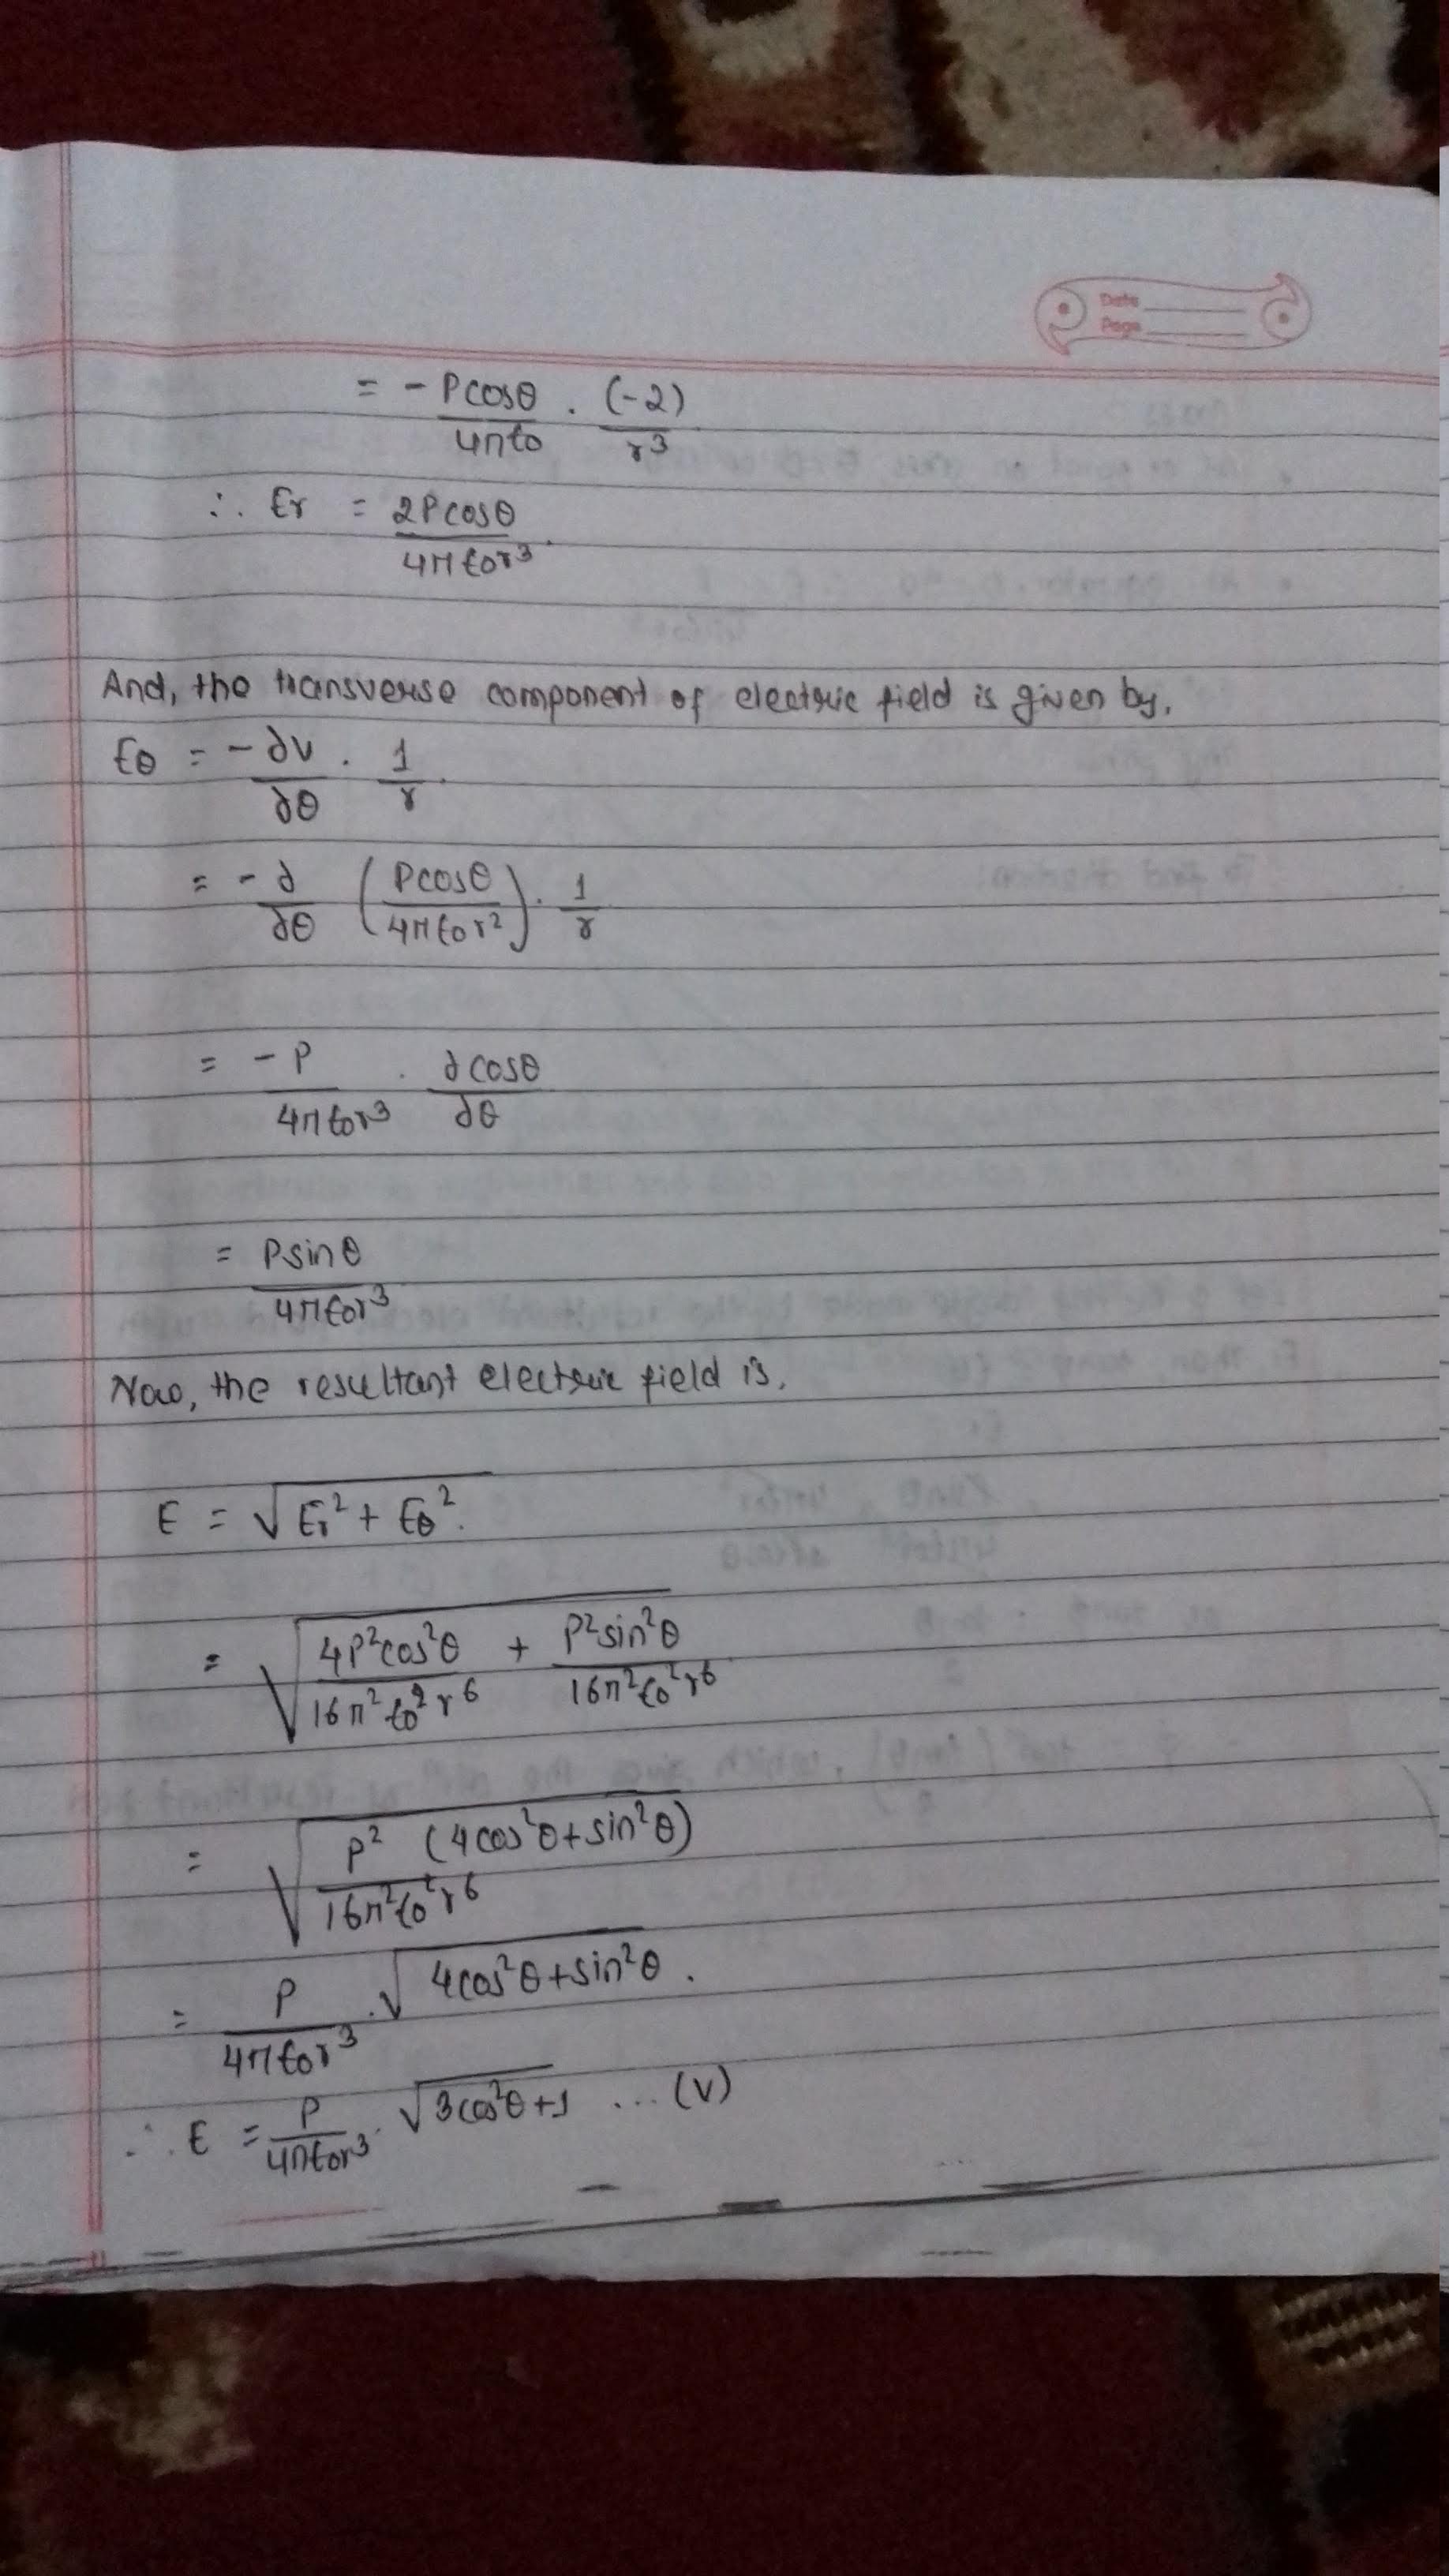 Date
Page
= - Pcosθ / 4πϵ0 . (-2) / r³
∴ Er = 2Pcosθ / 4πϵ0r³.
And, the transverse component of electric field is given by,
Eθ = - ∂v / ∂θ . 1 / r.
= - ∂ / ∂θ (Pcosθ / 4πϵ0r²) . 1 / r
= - P / 4πϵ0r³ . ∂cosθ / ∂θ
= Psinθ / 4πϵ0r³
Now, the resultant electric field is,
E = √(Er² + Eθ²).
= √(4P²cos²θ / 16π²ϵ0²r⁶ + P²sin²θ / 16π²ϵ0²r⁶)
= √(P² (4cos²θ+sin²θ) / 16π²ϵ0²r⁶)
= P / 4πϵ0r³ . √(4cos²θ+sin²θ).
∴ E = P / 4πϵ0r³ . √(3cos²θ+1) ... (V)